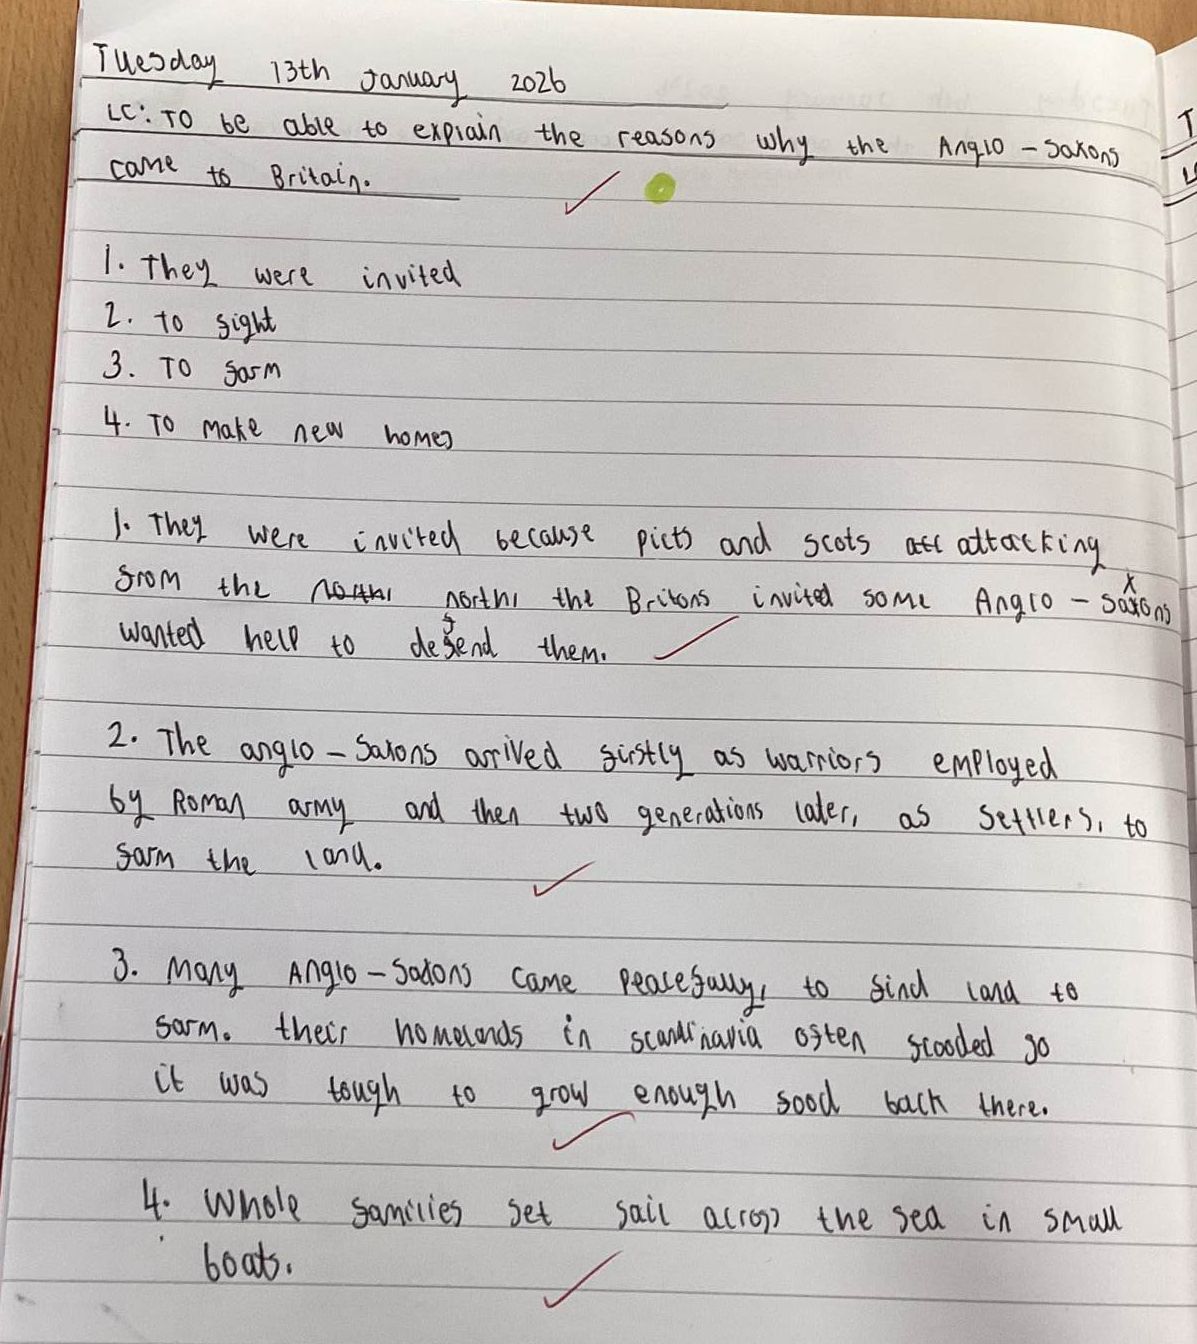 Tuesday 13th January 2026
LC: To be able to explain the reasons why the Anglo-Saxons
came to Britain.
1. They were invited
2. To fight
3. To farm
4. To make new homes
1. They were invited because picts and scots att attacking
from the north north, the Britons invited some Anglo-Saxons
wanted help to defend them.
2. The anglo-Saxons arrived firstly as warriors employed
by Roman army and then two generations later, as settlers, to
farm the land.
3. Many Anglo-Saxons came peacefully, to find land to
farm. their homelands in scandinavia often flooded so
it was tough to grow enough food back there.
4. Whole families set sail across the sea in small
boats.